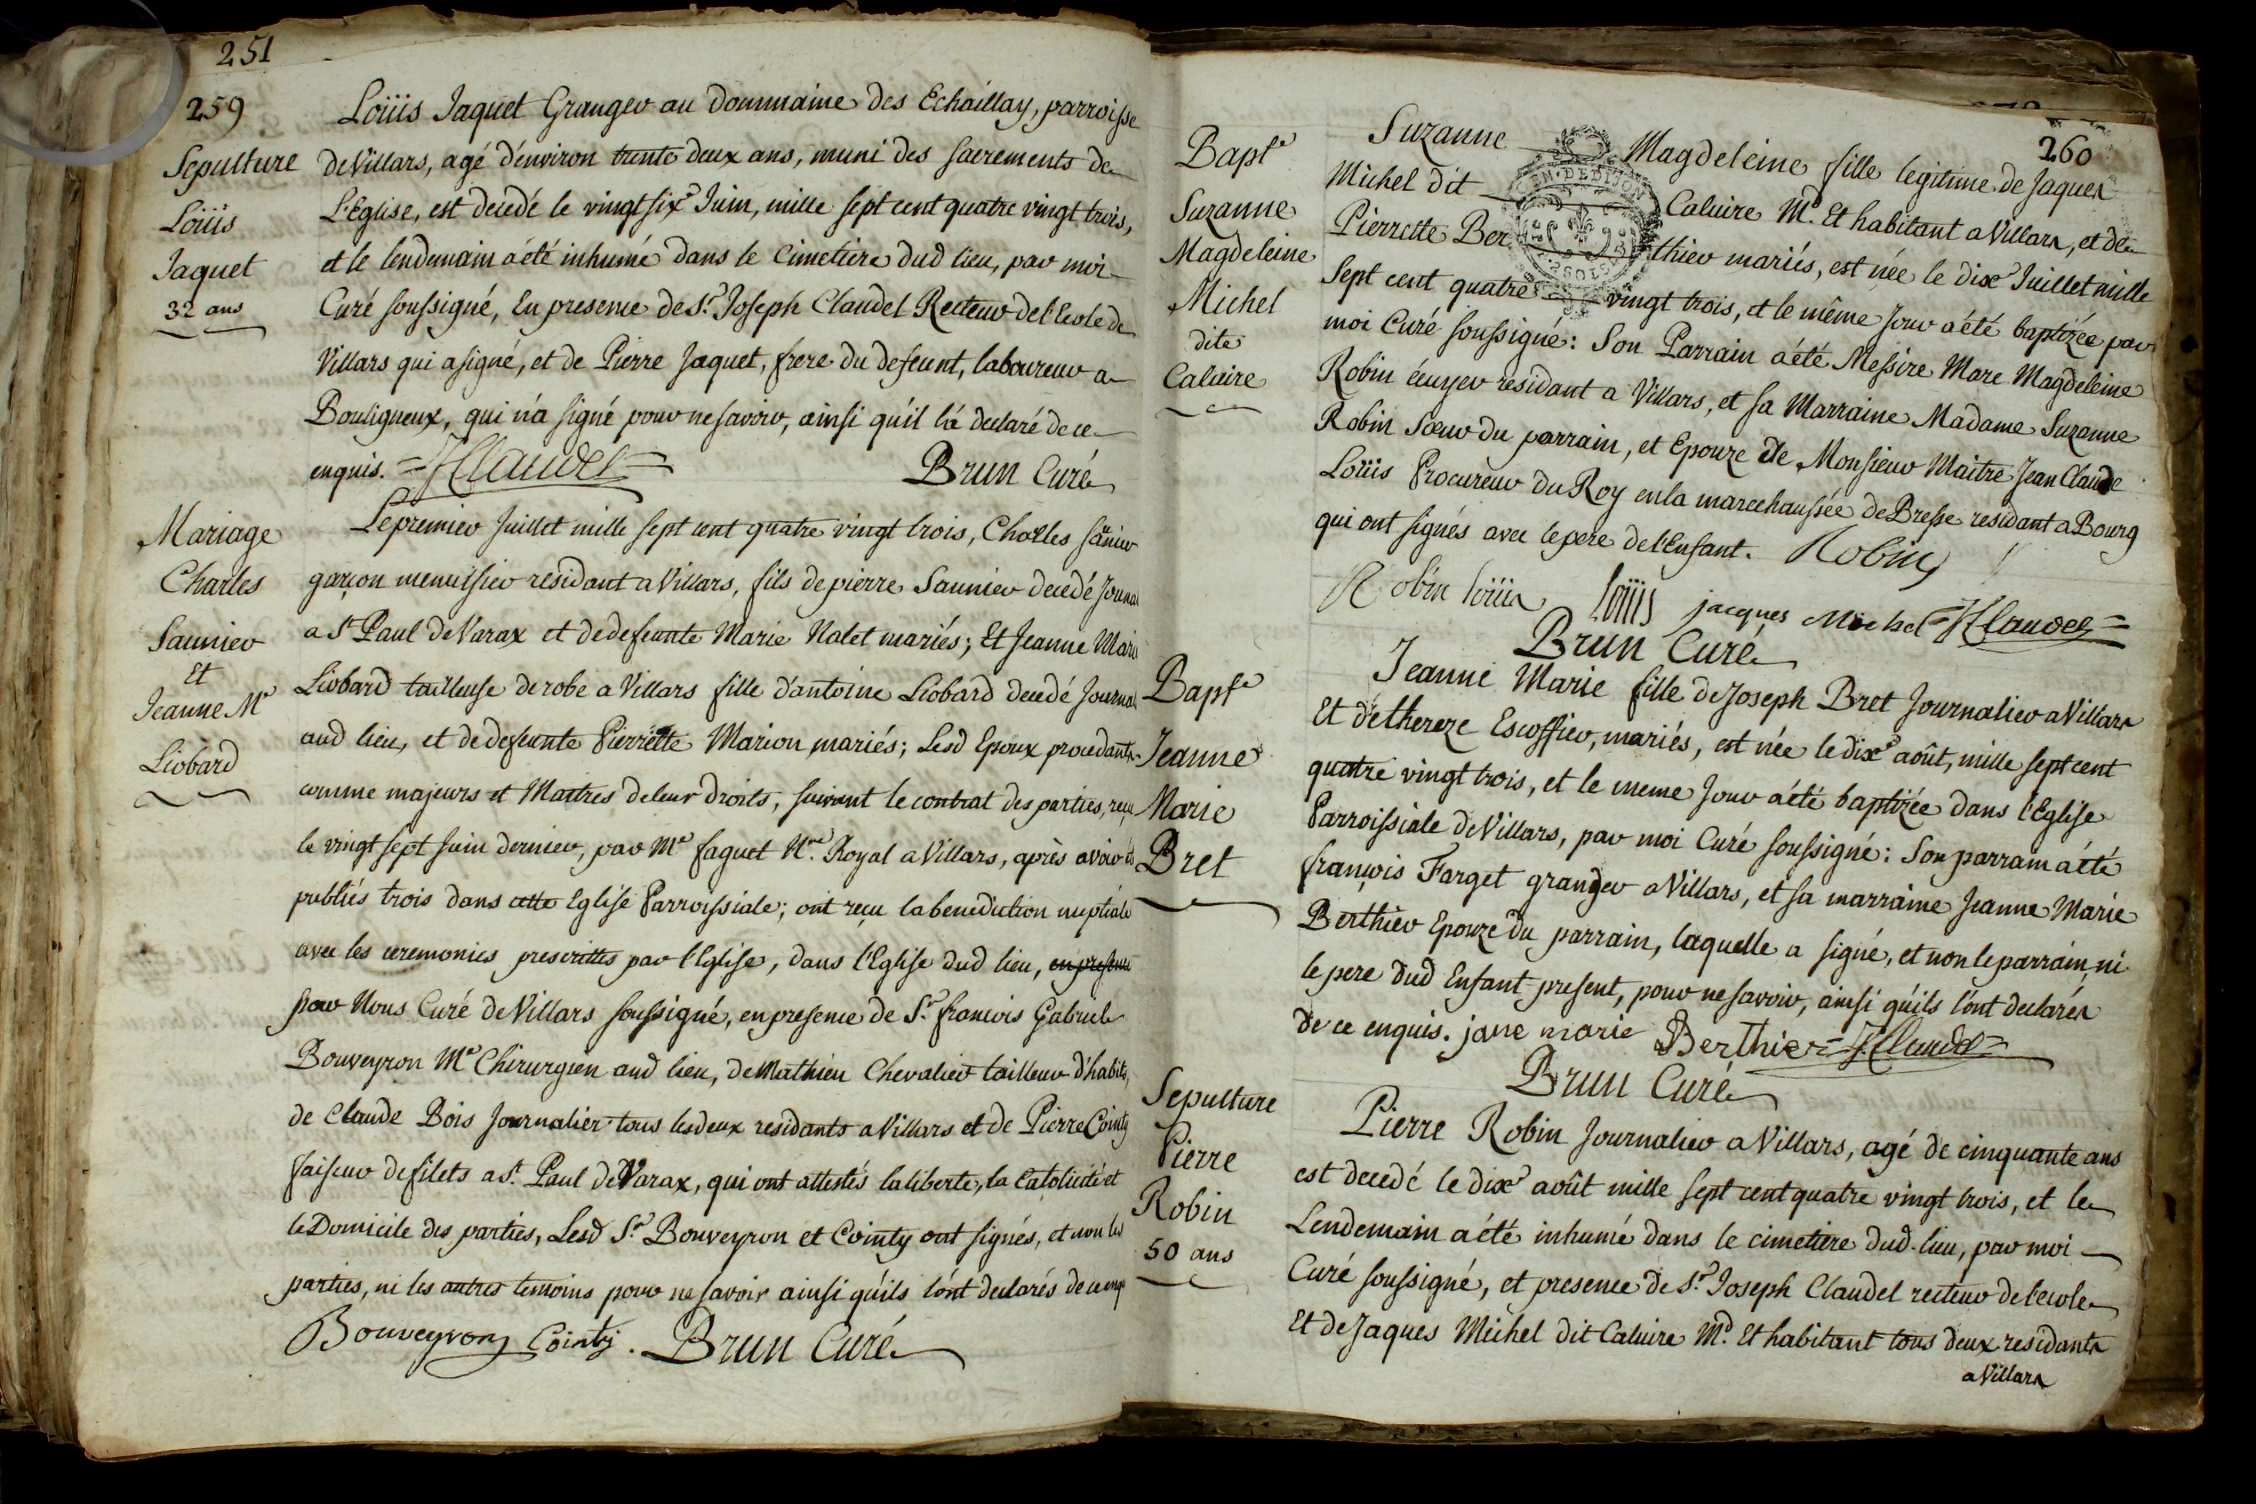 251
259
Sepulture
Loüis
Jaquet
32 ans
Loüis Jaquet Granger au dommaine des Echaillay, parroisse
de Villars, agé d'environ trente deux ans, muni des sacrements de
L'Eglise, est decedé le vingt six.e Juin, mille sept cent quatre vingt trois,
et le lendemain a été inhumé dans le Cimetiere dud lieu, par moi
Curé soussigné, En presence de S.r Joseph Claudel Recteur de l'Ecole de
Villars qui a signé, et de Pierre Jaquet, frere du defeunt, laboureur a
Bouligneux, qui n'a signé pour ne savoir, ainsi qu'il l'a declaré de ce
enquis. =JClaudel= Brun Curé
Mariage
Charles
Saunier
et
Jeanne M.e
Liobard
Le premier Juillet mille sept cent quatre vingt trois, Charles Saunier
garçon menuisier residant a Villars, fils de pierre Saunier decedé Journal
a S.t Paul de Varax et de defeunte Marie Nalet mariés; Et Jeanne Marie
Liobard tailleuse de robe a Villars fille d'antoine Liobard decedé Journal
aud lieu, et de defeunte Pierrette Marion mariés; Lesd Epoux procedants
comme majeurs et Maitres de leur droits, suivant le contrat des parties, reçu
le vingt sept Juin dernier, par M.e faguet N.re Royal a Villars, après avoir été
publiés trois dans cette Eglise Parroissiale; ont reçu la benediction nuptiale
avec les ceremonies prescrittes par l'Eglise, dans l'Eglise dud lieu, en presence
par Nous Curé de Villars soussigné, en presence de S.r francois Gabriel
Bouveyron M.e Chirurgien aud lieu, de Mathieu Chevalier tailleur d'habits,
de Claude Bois Journalier tous les deux residants a Villars et de Pierre Cointy
faiseur de filets a S.t Paul de Varax, qui ont attestés la liberté, la Catolicité et
le Domicile des parties, Lesd S.rs Bouveyron et Cointy ont signés, et non les
parties, ni les autres temoins pour ne savoir ainsi qu'ils l'ont declarés de ce enquis
Bouveyron Cointy. Brun Curé
260
Bapt.e
Suzanne
Magdeleine
Michel
dite
Caluire
Suzanne Magdeleine fille legitime de Jaques
Michel dit Caluire M.d Et habitant a Villars, et de
Pierrette Berthier mariés, est née le dix.e Juillet mille
Sept cent quatre vingt trois, et le même Jour a été baptizée par
moi Curé soussigné: Son Parrain a été Messire Marc Magdeleine
Robin écuyer residant a Villars, et sa Marraine Madame Suzanne
Robin Sœur du parrain, et Epouze de Monsieur Maitre Jean Claude
Loüis Procureur du Roy en la marechaussée de Bresse residant a Bourg
qui ont signés avec le pere de l'Enfant. Robin
Robin loüis loüis jacques Michel =JClaudel=
Brun Curé
Bapt.e
Jeanne
Marie
Bret
Jeanne Marie fille de Joseph Bret Journalier a Villars
Et de thereze Escoffier, mariés, est née le dix.e août, mille sept cent
quatre vingt trois, et le meme Jour a été baptizée dans l'Eglise
Parroissiale de Villars, par moi Curé soussigné: Son parrain a été
françois Farget granger a Villars, et sa marraine Jeanne Marie
Berthier Epouze du parrain, laquelle a signé, et non le parrain, ni
le pere dud Enfant present, pour ne savoir, ainsi qu'ils l'ont declarés
de ce enquis. jane marie Berthier =JClaudel=
Brun Curé
Sepulture
Pierre
Robin
50 ans
Pierre Robin Journalier a Villars, agé de cinquante ans
est decedé le dix.e août mille sept cent quatre vingt trois, et le
Lendemain a été inhumé dans le cimetiere dud. lieu, par moi
Curé soussigné, et presence de S.r Joseph Claudel recteur de l'ecole
Et de Jaques Michel dit Caluire M.d Et habitant tous deux residants
a Villars